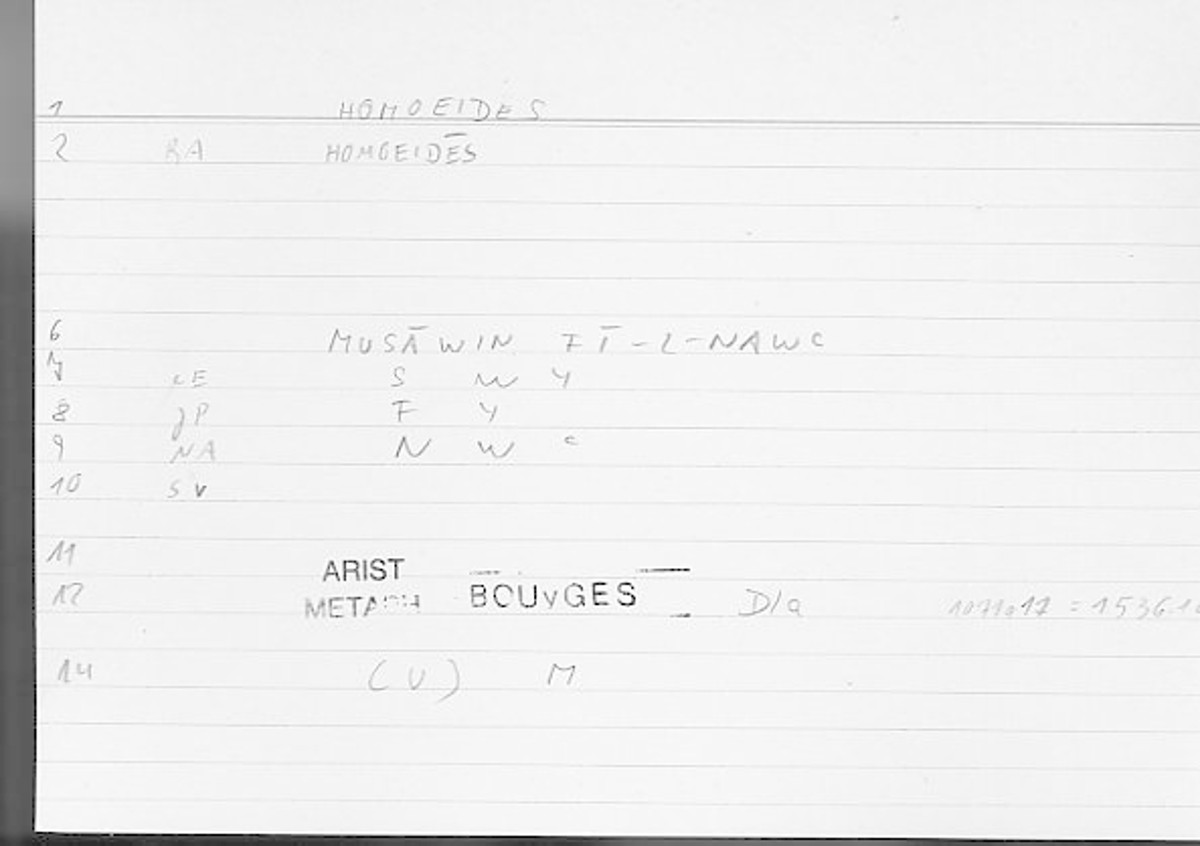 1 HOMOEIDES
2 RA HOMOEIDĒS
6 MUSĀWIN FĪ-L-NAWC
7 LE S W Y
8 JP F Y
9 NA N W c
10 SV
11
ARIST
12 METAPH BOUYGES D/a = 1536.
14 (U) M